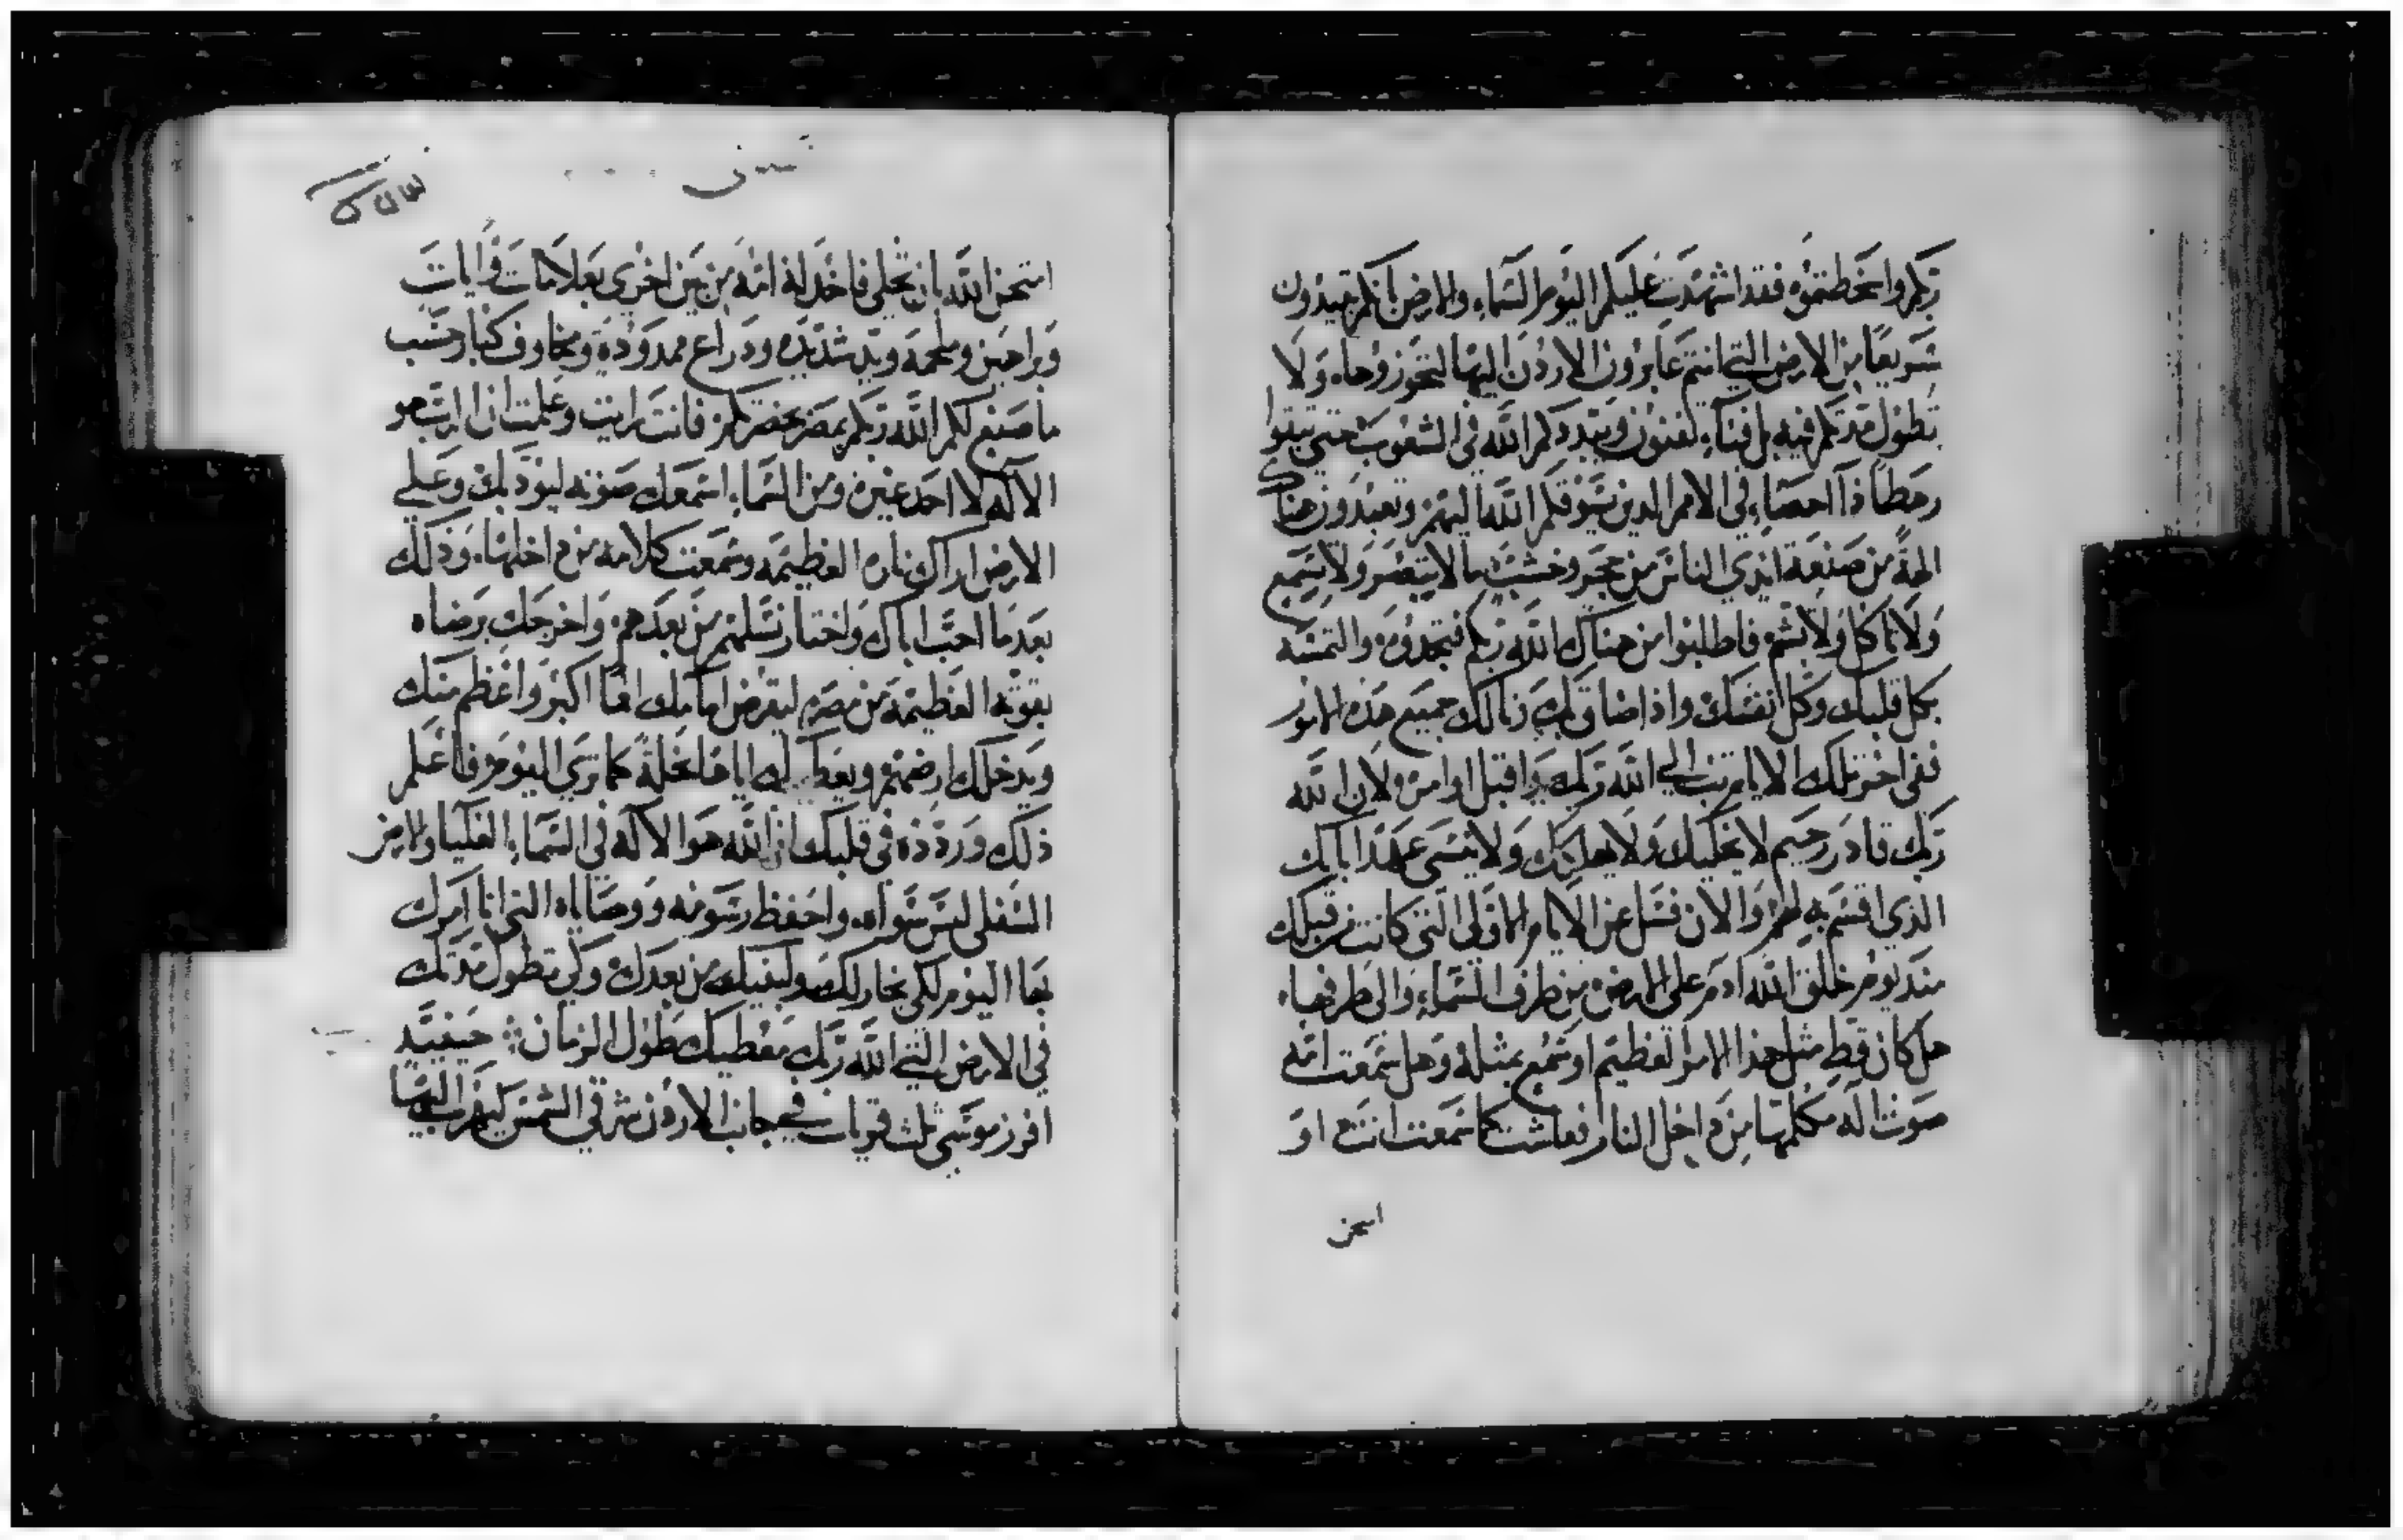 ربكم واسخطتموه فقد اشهدت عليكم اليوم السماء والارض بانكم تبيدون
سريعًا من الارض التي انتم عابرون الاردن اليها لتحوزوها ولا
تطول مدتكم فيه بل فناء تفنون ويبددكم الله في الشعوب حتى تبقوا
رهطًا ذا احصاء في الامم الذين يسوقكم الله اليهم وتعبدون هناك
الهةً من صنعة ايدي الناس من حجر وخشب ما لا يبصر ولا يسمع
ولا ياكل ولا يشم فاطلبوا من هناك الله ربكم فتجدوه والتمسه
بكل قلبك وكل نفسك واذا ضاق بك ونالك جميع هذه الامور
ففي اخر تلك الايام تب الي الله ربك واقبل اوامره لان الله
ربك قادر رحيم لا يخليك ولا يهلكك ولا ينسى عهد ابايك
الذي اقسم به لهم والان فسل عن الايام الاولى التي كانت من قبلك
منذ يوم خلق الله ادم على الارض من طرف السماء والى طرفها
هل كان قط مثل هذا الامر العظيم او سمع بمثله وهل سمعت امة
صوت اله مكلمها من داخل النار فعاشت كما سمعت انت او
امتحن
امتحن الله بان تجلى فاخذ له امة من بين اخرى بعلامات وايات
وبراهين وملحمة ويد شديده وذراع ممدودة ومخاوف كبار حسب
ما صنع لكم الله ربكم بمصر بحضرتكم فانت رايت وعلمت ان الرب هو
الاله لا احد غيره ومن السماء اسمعك صوته ليودبك وعلي
الارض اراك ناره العظيمه وسمعت كلامه من داخلها وذلك
بعد ما احب اباك واختار نسلهم من بعدهم واخرجك برضاه
بقوته العظيمة من مصر ليقرض امامك امما اكبر واعظم منك
ويدخلك ارضهم ويعطيك اياها نحلة كما تري اليوم فاعلم
ذلك وردده في قلبك ان الله هو الاله في السماء العليا والارض
السفلي ليس سواه واحفظ رسومه ووصاياه التي انا امرك
بها اليوم لكي يخار لك ولبنيك من بعدك ولكي تطول مدتك
في الارض التي الله ربك معطيك طول الزمان حينيذ
افرز موسي ثلث قريات في جانب الاردن شرقي الشمس ليهرب اليها